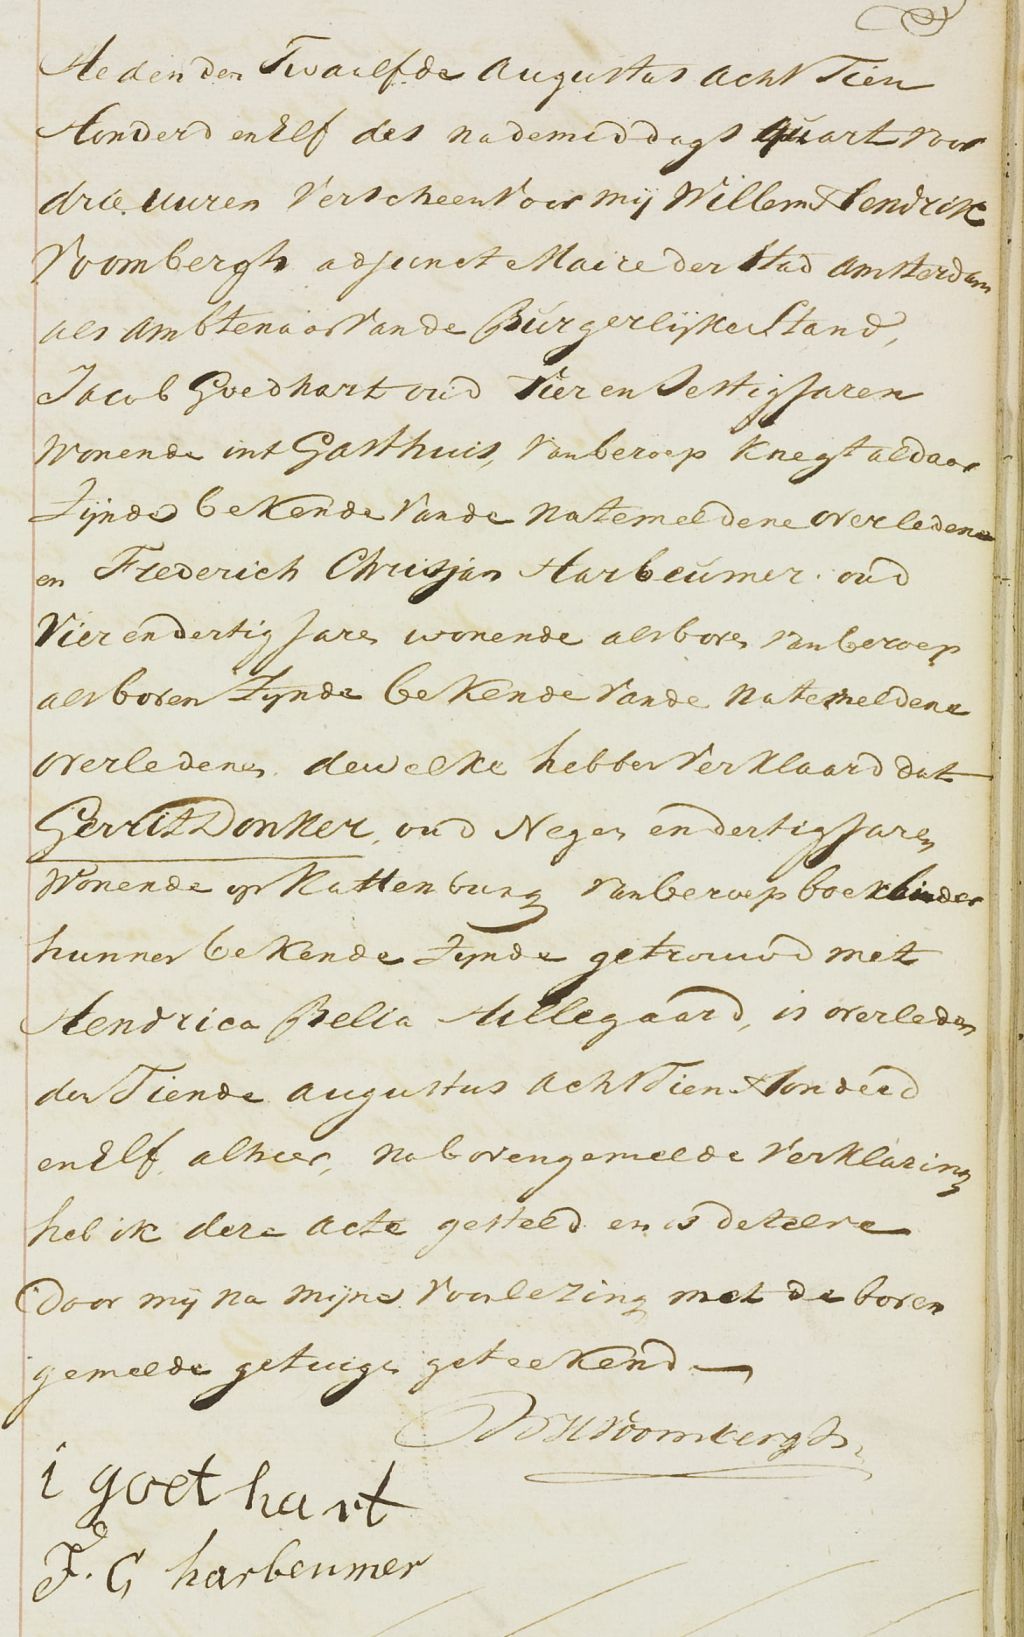 Heden den Twaalfde Augustus acht Tien
Honderd en Elf des nademiddags quart voor
drie uuren Verscheen Voor mij Willem Hendrik
Voombergh adjunct Maire der Stad Amsterdam
als Ambtenaar Van de Burgerlijke Stand,
Jacob Goedhart oud Vier en Sestig Jaren
Wonende int Gasthuis, Van beroep Knegt aldaar
Zijnde bekende Van de natemeldene overledene
en Frederich Chrisjan Harbeumer oud
Vier en dertig Jaren wonende als boven van beroep
als boven Zijnde bekende Van de natemeldene
overledene, dewelke hebben Verklaard dat
Gerrit Donker, oud Negen en dertig Jaren
Wonende op Kattenburg Van beroep boekbinder
hunner bekende Zijnde getrouwd met
Hendrica Belia Hillegaard, is overleden
den Tiende augustus acht Tien Honderd
en Elf, alhier, na bovengemelde Verklaring
heb ik deze acte gesteld en is dezelve
Door mij na mijne Voorlezing met de boven
gemelde getuige geteekend
WH Voombergh
i goethart
F. C harbeumer